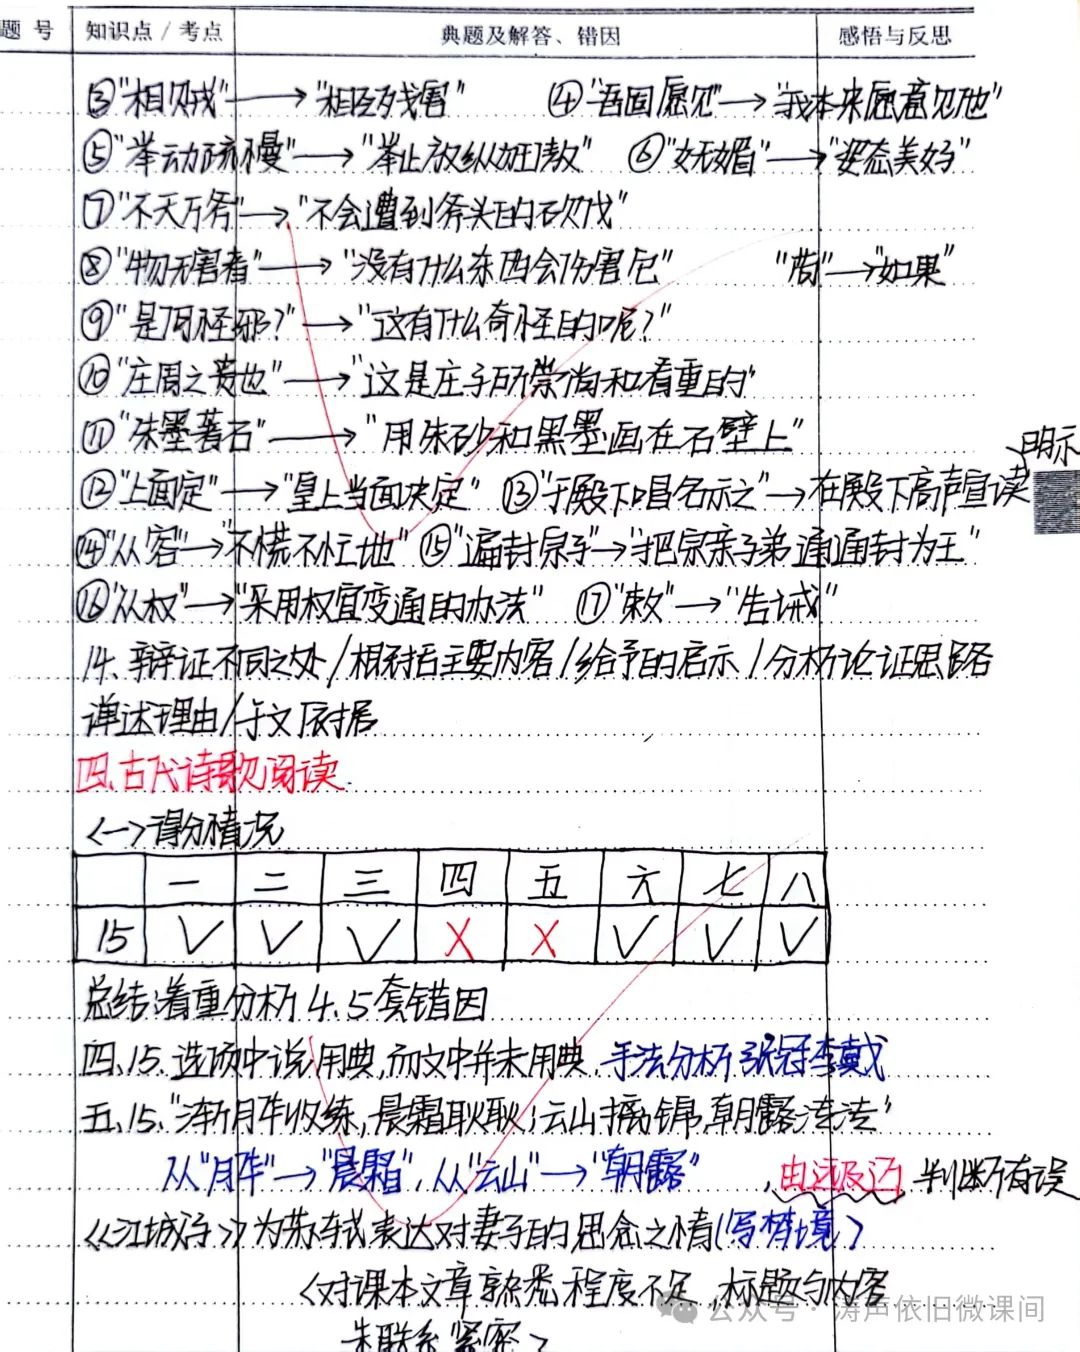 题 号 知识点 / 考点 典题及解答、错因 感悟与反思
③"相残"→"相互残害" ④"吾固愿见"→"我本来愿意见他"
⑤"举动疏慢"→"举止放纵如傲" ⑥"妩媚"→"姿态美好"
⑦"不夭斤斧"→"不会遭到斧头的砍伐"
⑧"物无害者"→"没有什么东西会伤害它" "苟"→"如果"
⑨"是何怪邪?"→"这有什么奇怪的呢?"
⑩"庄周之贵也"→"这是庄子所崇尚和看重的"
⑪"朱墨著石"→"用朱砂和黑墨画在石壁上"
明示
⑫"上面定"→"皇上当面决定" ⑬"于殿下唱名示之"→在殿下高声宣读
⑭"从容"→"不慌不忙地" ⑮"遍封宗子"→"把宗亲子弟通通封为王"
⑯"从权"→"采用权宜变通的办法" ⑰"敕"→"告诫"
14. 辩证不同之处/相对后主要内容/给予的启示/分析论证思路
详述理由/于文依据
四.古代诗歌阅读.
<一>得分情况
一 二 三 四 五 六 七 八
15 ✓ ✓ ✓ X X ✓ ✓ ✓
总结:着重分析4.5套错因
四.15.选项中说用典,而文中并未用典.手法分析张冠李戴
五.15."渐月华收练,晨霜耿耿;云山摛锦,朝露漙漙"
从"月华"→"晨霜",从"云山"→"朝露" ,由远及近,判断有误
《江城子》为苏轼表达对妻子的思念之情(写梦境>
<对课本文章熟悉程度不足,标题与内容
未联系紧密>
公众号·涛声依旧微课间